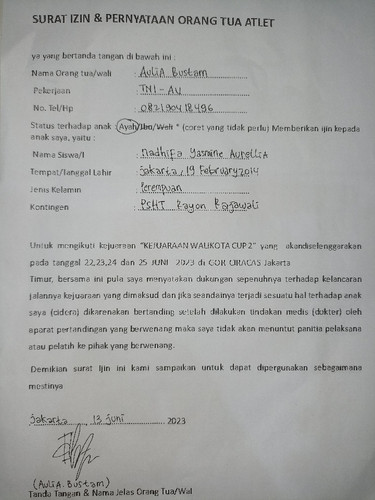 SURAT IZIN & PERNYATAAN ORANG TUA ATLET
ya yang bertanda tangan di bawah ini :
Nama Orang tua/wali : Aulia Bustam
Pekerjaan : TNI - AU
No. Tel/Hp : 082190418496
Status terhadap anak : Ayah/Ibu/Wali * (coret yang tidak perlu) Memberikan ijin kepada
anak saya, yaitu :
Nama Siswa/I : Nadhifa Yasmine Aurellia
Tempat/Tanggal Lahir : Jakarta, 19 February 2014
Jenis Kelamin : Perempuan
Kontingen : PSHT Rayon Rajawali
Untuk mengikuti kejuaraan "KEJUARAAN WALIKOTA CUP 2" yang akandiselenggarakan
pada tanggal 22,23,24 dan 25 JUNI 2023 di GOR CIRACAS Jakarta
Timur, bersama ini pula saya menyatakan dukungan sepenuhnya terhadap kelancaran
jalannya kejuaraan yang dimaksud dan jika seandainya terjadi sesuatu hal terhadap anak
saya (cidera) dikarenakan bertanding setelah dilakukan tindakan medis (dokter) oleh
aparat pertandingan yang berwenang maka saya tidak akan menuntut panitia pelaksana
atau pelatih ke pihak yang berwenang.
Demikian surat Ijin ini kami sampaikan untuk dapat dipergunakan sebagaimana
mestinya
Jakarta 13 Juni 2023
(Aulia. Bustam)
Tanda Tangan & Nama Jelas Orang Tua/Wal